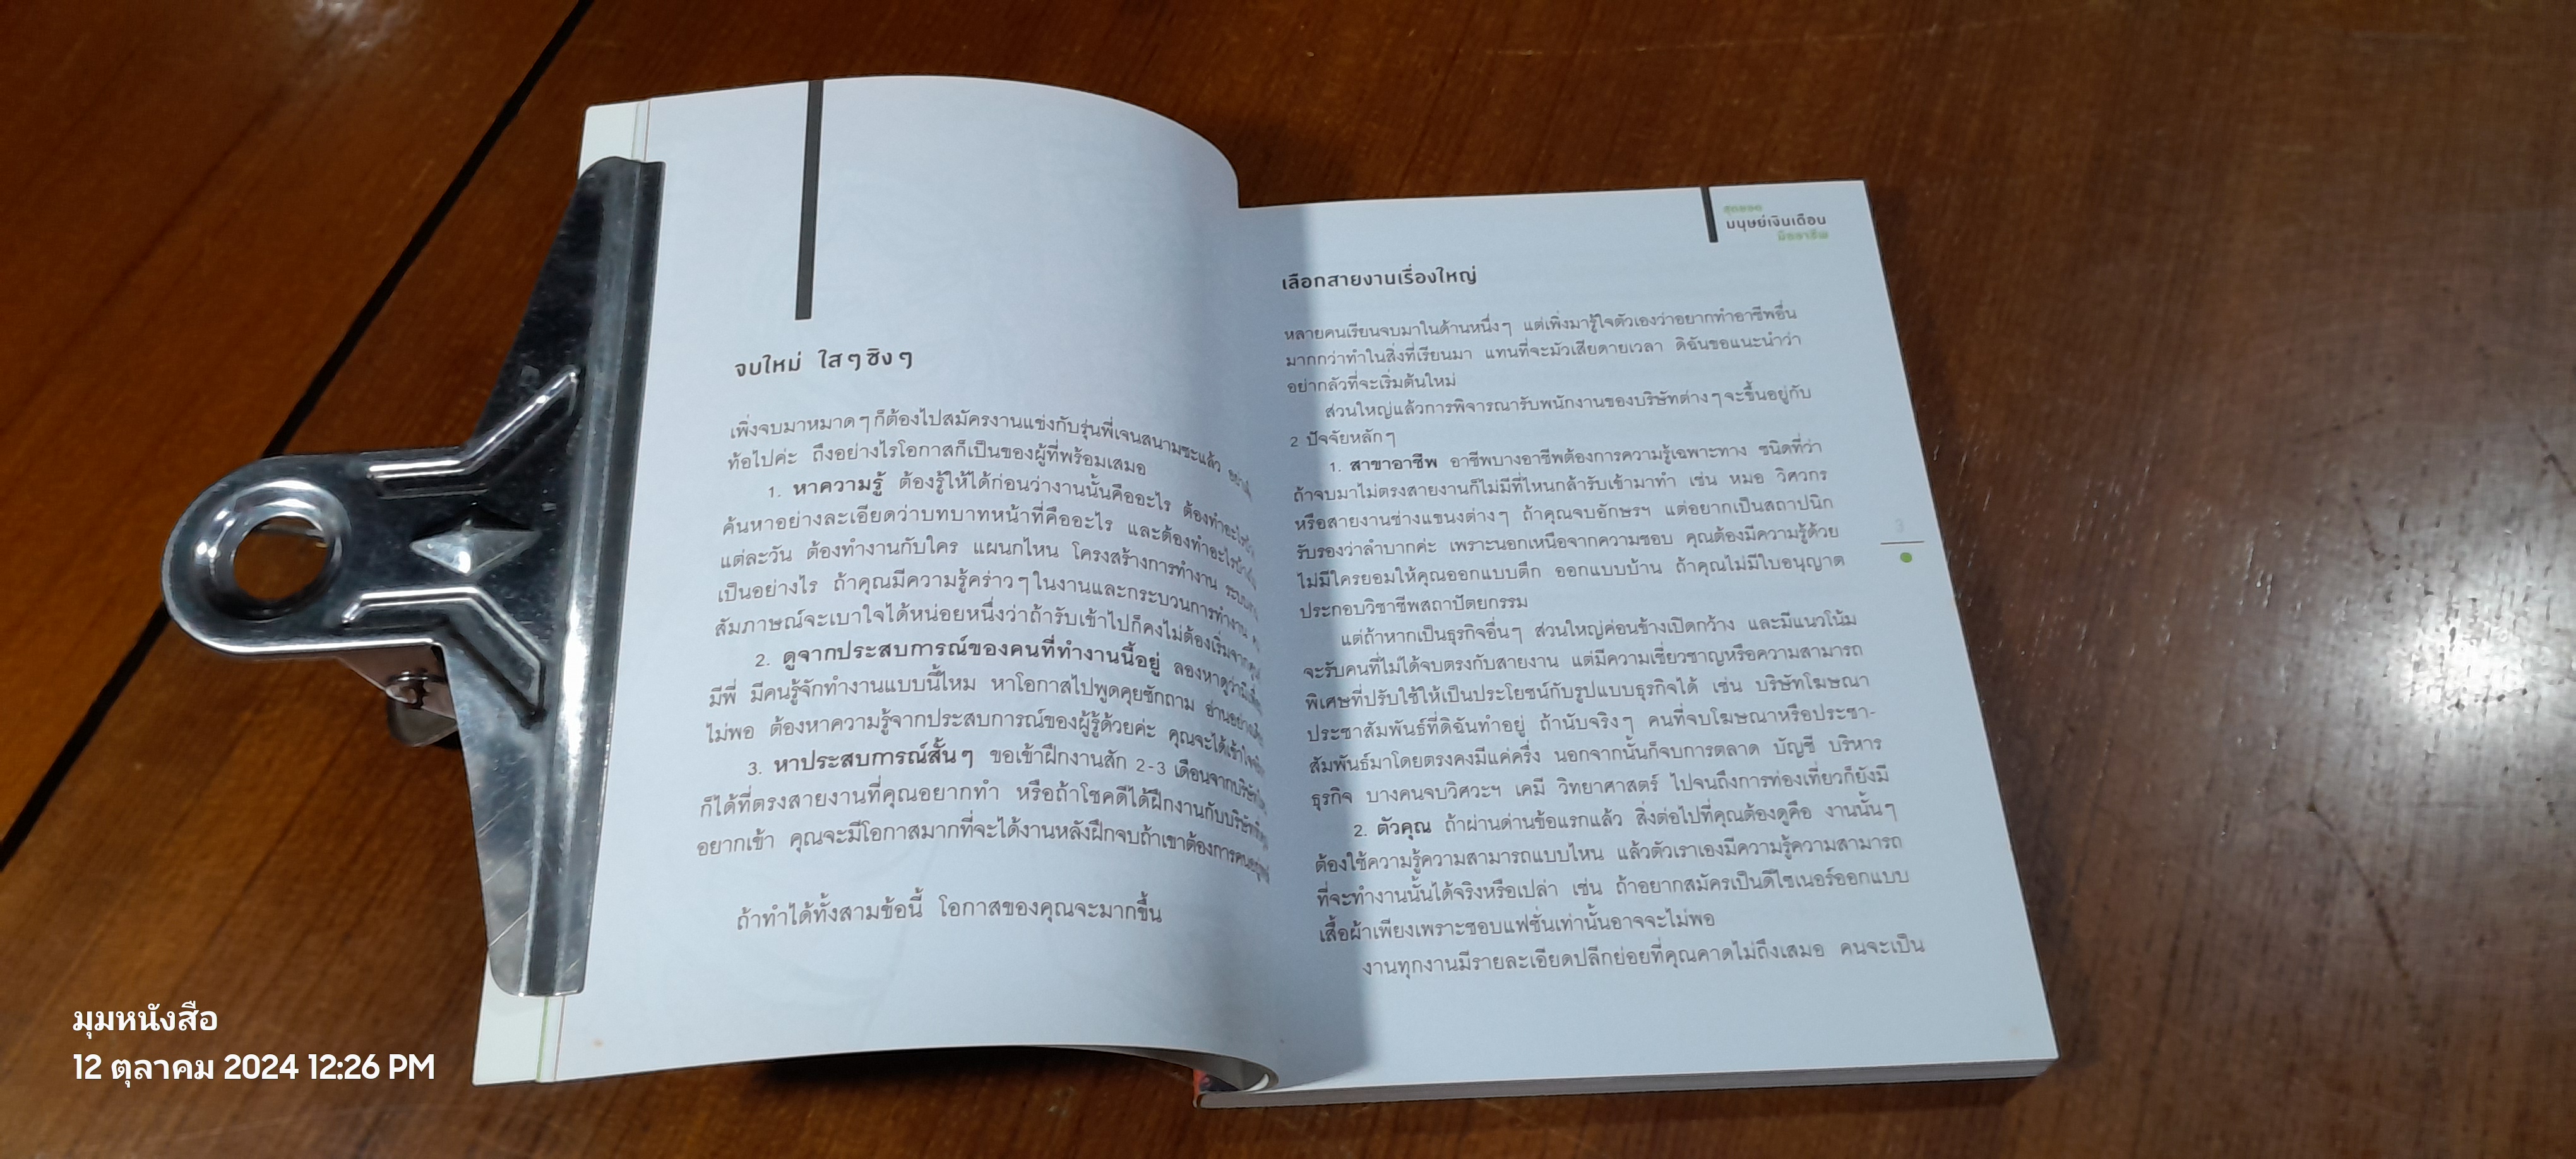 จบใหม่ ใสๆซิงๆ
เพิ่งจบมาหมาดๆก็ต้องไปสมัครงานแข่งกับรุ่นพี่เจนสนามซะแล้ว อย่าเพิ่ง
ท้อไปค่ะ ถึงอย่างไรโอกาสก็เป็นของผู้ที่พร้อมเสมอ
1. หาความรู้ ต้องรู้ให้ได้ก่อนว่างานนั้นคืออะไร ต้องทำอะไรบ้าง
ค้นหาอย่างละเอียดว่าบทบาทหน้าที่คืออะไร และต้องทำอะไรบ้างใน
แต่ละวัน ต้องทำงานกับใคร แผนกไหน โครงสร้างการทำงาน ระบบงาน
เป็นอย่างไร ถ้าคุณมีความรู้คร่าวๆในงานและกระบวนการทำงาน
สัมภาษณ์จะเบาใจได้หน่อยหนึ่งว่าถ้ารับเข้าไปก็คงไม่ต้องเริ่มจากศูนย์
2. ดูจากประสบการณ์ของคนที่ทำงานนี้อยู่ ลองหาดูว่ามีเพื่อน
มีพี่ มีคนรู้จักทำงานแบบนี้ไหม หาโอกาสไปพูดคุยซักถาม อ่านอย่างเดียว
ไม่พอ ต้องหาความรู้จากประสบการณ์ของผู้รู้ด้วยค่ะ คุณจะได้เข้าใจ
3. หาประสบการณ์สั้นๆ ขอเข้าฝึกงานสัก 2-3 เดือนจากบริษัท
ก็ได้ที่ตรงสายงานที่คุณอยากทำ หรือถ้าโชคดีได้ฝึกงานกับบริษัทที่คุณ
อยากเข้า คุณจะมีโอกาสมากที่จะได้งานหลังฝึกจบถ้าเขาต้องการคน
ถ้าทำได้ทั้งสามข้อนี้ โอกาสของคุณจะมากขึ้น
สุดยอด
มนุษย์เงินเดือน
มืออาชีพ
เลือกสายงานเรื่องใหญ่
หลายคนเรียนจบมาในด้านหนึ่งๆ แต่เพิ่งมารู้ใจตัวเองว่าอยากทำอาชีพอื่น
มากกว่าทำในสิ่งที่เรียนมา แทนที่จะมัวเสียดายเวลา ดิฉันขอแนะนำว่า
อย่ากลัวที่จะเริ่มต้นใหม่
ส่วนใหญ่แล้วการพิจารณารับพนักงานของบริษัทต่างๆจะขึ้นอยู่กับ
2 ปัจจัยหลักๆ
1. สาขาอาชีพ อาชีพบางอาชีพต้องการความรู้เฉพาะทาง ชนิดที่ว่า
ถ้าจบมาไม่ตรงสายงานก็ไม่มีที่ไหนกล้ารับเข้ามาทำ เช่น หมอ วิศวกร
หรือสายงานช่างแขนงต่างๆ ถ้าคุณจบอักษรฯ แต่อยากเป็นสถาปนิก
รับรองว่าลำบากค่ะ เพราะนอกเหนือจากความชอบ คุณต้องมีความรู้ด้วย
ไม่มีใครยอมให้คุณออกแบบตึก ออกแบบบ้าน ถ้าคุณไม่มีใบอนุญาต
ประกอบวิชาชีพสถาปัตยกรรม
แต่ถ้าหากเป็นธุรกิจอื่นๆ ส่วนใหญ่ค่อนข้างเปิดกว้าง และมีแนวโน้ม
จะรับคนที่ไม่ได้จบตรงกับสายงาน แต่มีความเชี่ยวชาญหรือความสามารถ
พิเศษที่ปรับใช้ให้เป็นประโยชน์กับรูปแบบธุรกิจได้ เช่น บริษัทโฆษณา
ประชาสัมพันธ์ที่ดิฉันทำอยู่ ถ้านับจริงๆ คนที่จบโฆษณาหรือประชา-
สัมพันธ์มาโดยตรงคงมีแค่ครึ่ง นอกจากนั้นก็จบการตลาด บัญชี บริหาร
ธุรกิจ บางคนจบวิศวะฯ เคมี วิทยาศาสตร์ ไปจนถึงการท่องเที่ยวก็ยังมี
2. ตัวคุณ ถ้าผ่านด่านข้อแรกแล้ว สิ่งต่อไปที่คุณต้องดูคือ งานนั้นๆ
ต้องใช้ความรู้ความสามารถแบบไหน แล้วตัวเราเองมีความรู้ความสามารถ
ที่จะทำงานนั้นได้จริงหรือเปล่า เช่น ถ้าอยากสมัครเป็นดีไซเนอร์ออกแบบ
เสื้อผ้าเพียงเพราะชอบแฟชั่นเท่านั้นอาจจะไม่พอ
งานทุกงานมีรายละเอียดปลีกย่อยที่คุณคาดไม่ถึงเสมอ คนจะเป็น
3
มุมหนังสือ
12 ตุลาคม 2024 12:26 PM